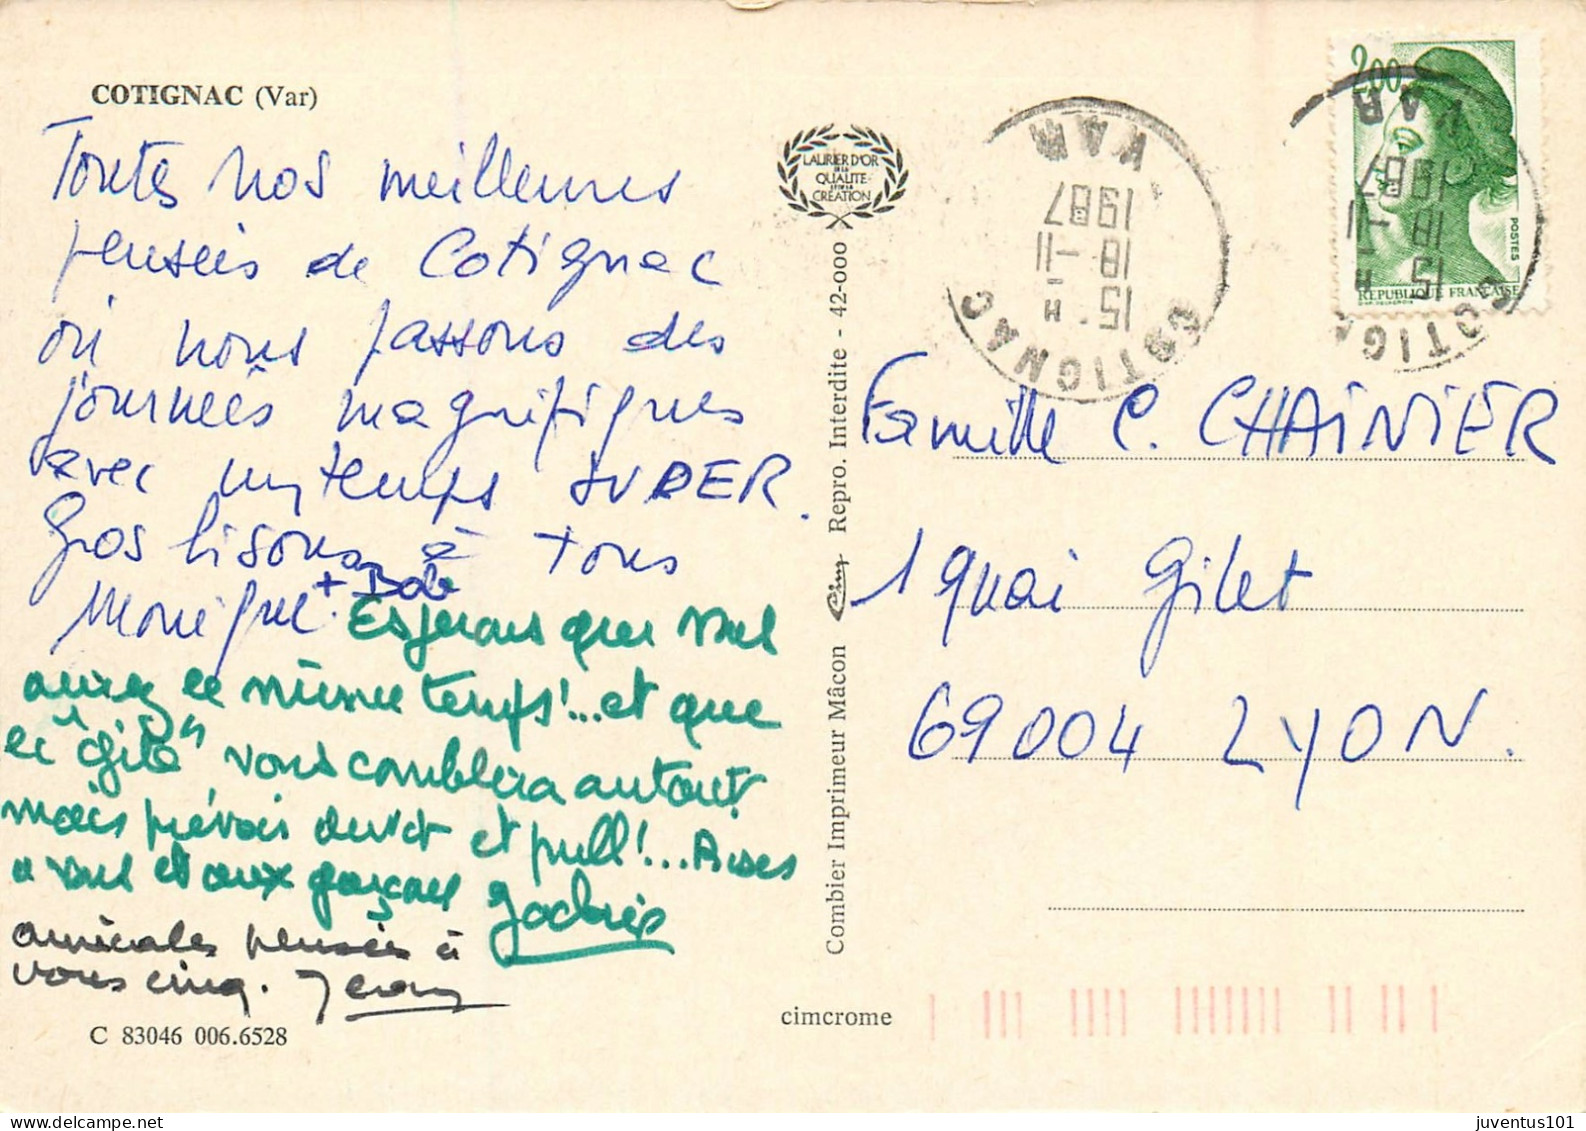 COTIGNAC (Var)
Toutes nos meilleures
pensées de Cotignac
où nous passons des
journées magnifiques
avec un temps SUPER.
Gros bisous à tous
Monique + Bob
Esperons que vous
aurez le même temps!...et que
le "gite" vous comblera autant
mais prévois duvet et pull!... Bises
a vous et aux garçons
amicales pensées à
vous cinq. Jean
C 83046 006.6528
LAURIER D'OR
DE LA
QUALITE
ET DE LA
CREATION
Combier Imprimeur Mâcon Cim Repro. Interdite - 42-000
cimcrome
COTIGNAC
15 H
18-11
1987
VAR
2,00
POSTES
REPUBLIQUE FRANÇAISE
COTIGNAC
15 H
18-11
1987
VAR
Famille C. CHAINIER
1 quai Gilet
69004 LYON.
juventus101